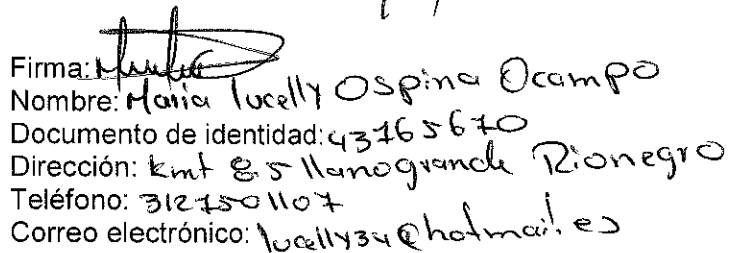 Firma:
Nombre: Maria lucelly Ospina Ocampo
Documento de identidad: 43765670
Dirección: kmt 8.5 llanogrande Rionegro
Teléfono: 3127501107
Correo electrónico: lucelly34@hotmail.es